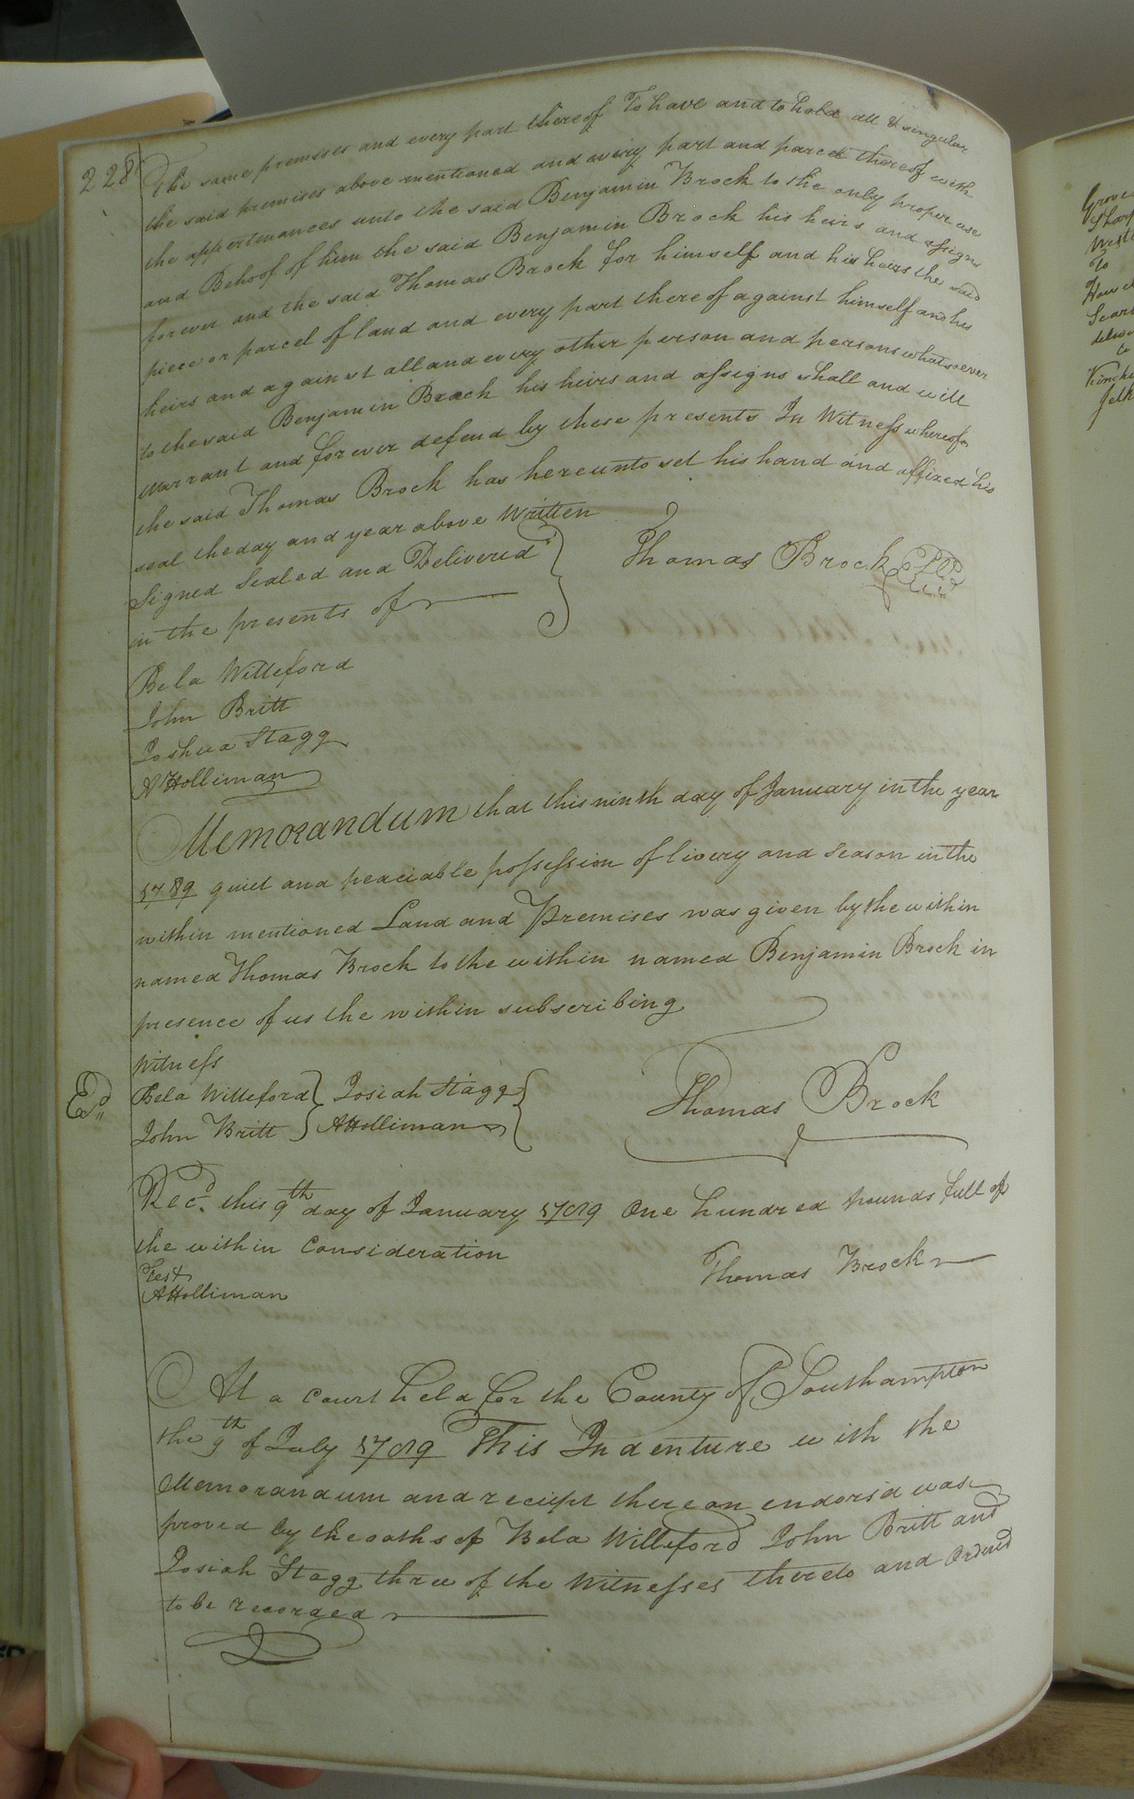 228
The same premises and every part thereof To have and to hold all & singular
the said premises above mentioned and every part and parcel thereof with
the appertenances unto the said Benjamin Brock to the only proper use
and Behoof of him the said Benjamin Brock his heirs and assigns
forever and the said Thomas Brock for himself and his heirs the said
piece or parcel of land and every part thereof against himself and his
heirs and against all and every other person and persons whatsoever
to the said Benjamin Brock his heirs and assigns shall and will
warrant and forever defend by these presents In Witness whereof
the said Thomas Brock has hereunto set his hand and affixed his
seal the day and year above Written
Signed Sealed and Delivered
in the presents of
Thomas Brock
Bela Willeford
John Britt
Joshua Stagg
A Holliman
Memorandum that this ninth day of January in the year
1789 quiet and peaciable possession of livery and Season in the
within mentioned Land and Premises was given by the within
named Thomas Brock to the within named Benjamin Brock in
presence of us the within subscribing
Witness
Bela Willeford Josiah Stagg
John Britt A Holliman
Thomas Brock
Exd
Recd. this 9th day of January 1789 One hundred pounds full of
the within Consideration
Test
A Holliman
Thomas Brock
At a Court held for the County of Southampton
the 9th of July 1789 This Indenture with the
Memorandum and reciept thereon endorsd was
proved by the oaths of Bela Willeford John Britt and
Josiah Stagg three of the Witnesses thereto and Ordered
to be recorded
Grove
Thorp
West
to
How
Sear
deliv
to